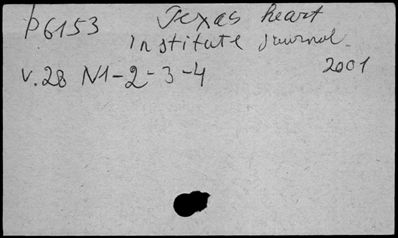 p6153 Texas heart
institute journal.
v.28 N1-2-3-4 2001